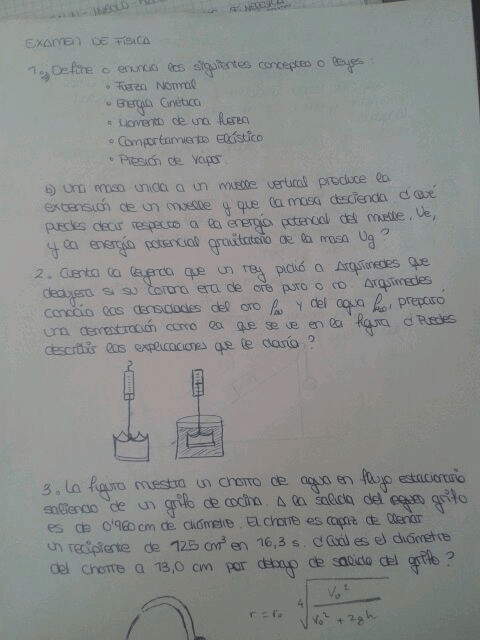 EXAMEN DE FÍSICA
1. a) Define o enuncia los siguientes conceptos o leyes:
• Fuerza Normal
• Energía Cinética
• Momento de una fuerza
• Comportamiento Elástico
• Presión de Vapor.
b) Una masa unida a un muelle vertical produce la
extensión de un muelle y que la masa descienda. ¿Qué
puedes decir respecto a la energía potencial del muelle, Ue,
y la energía potencial gravitatorio de la masa Ug?
2. Cuenta la leyenda que un rey pidió a Arquímedes que
dedujera si su corona era de oro puro o no. Arquímedes
conocía las densidades del oro ρAu y del agua ρH2O, preparó
una demostración como la que se ve en la figura. ¿Puedes
describir las explicaciones que le daría?
3. La figura muestra un chorro de agua en flujo estacionario
saliendo de un grifo de cocina. A la salida del grifo
es de 0'960 cm de diámetro. El chorro es capaz de llenar
un recipiente de 125 cm³ en 16,3 s. ¿Cuál es el diámetro
del chorro a 13,0 cm por debajo de salida del grifo?
r = r₀ ⁴√(V₀² / (V₀² + 2gh))